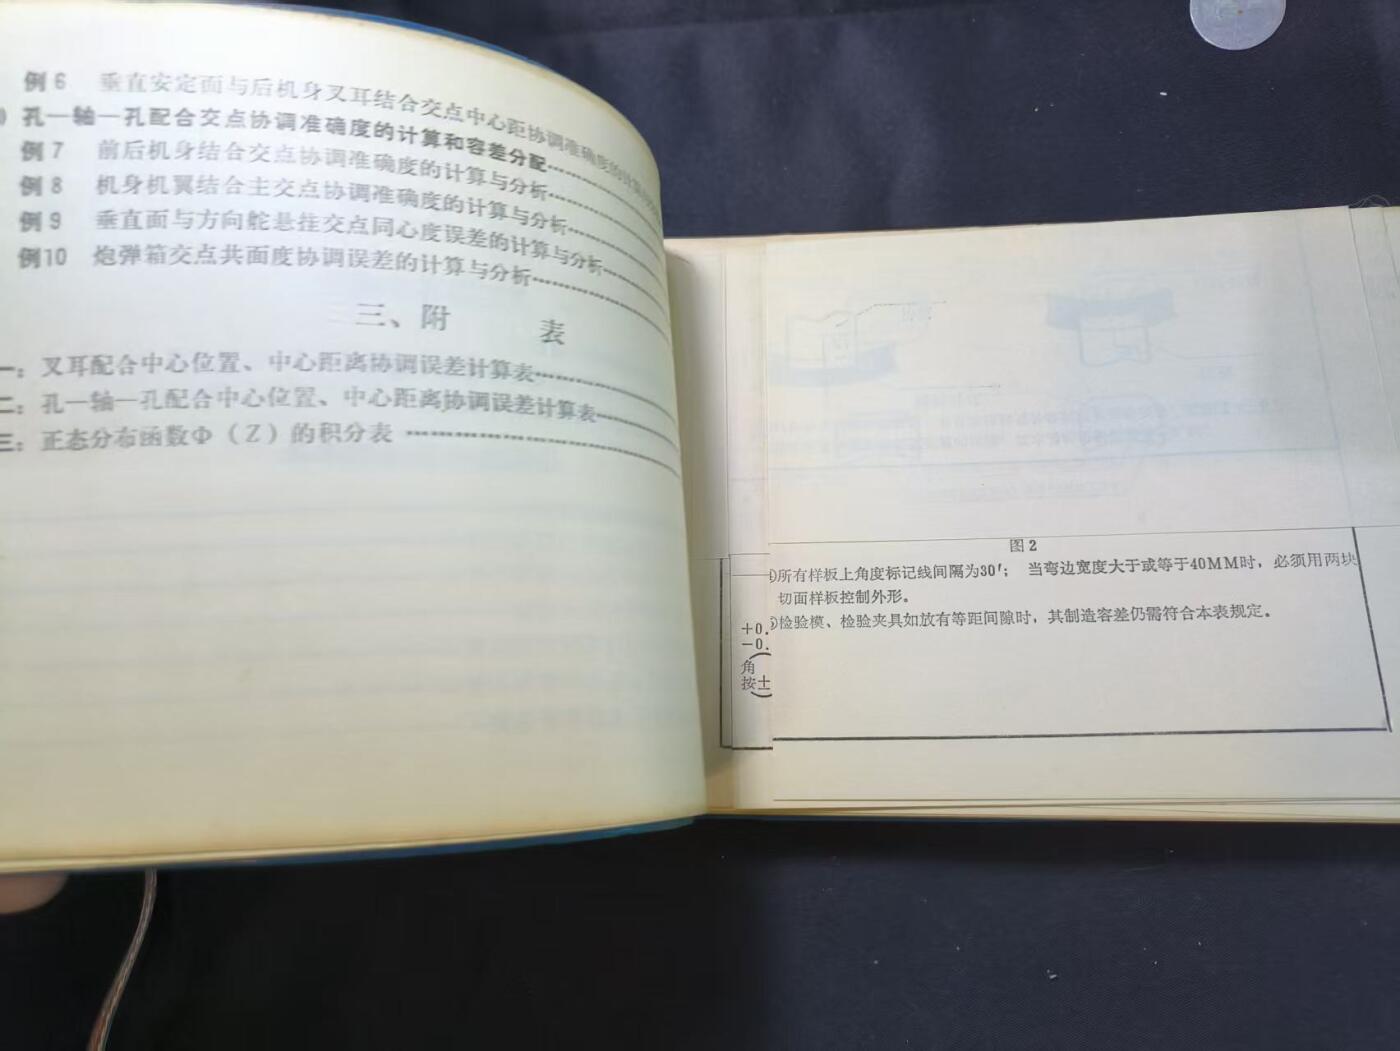 例6 垂直安定面与后机身叉耳结合交点中心距协调准确度的计算与
孔—轴—孔配合交点协调准确度的计算和容差分配……
例7 前后机身结合交点协调准确度的计算与分析……
例8 机身机翼结合主交点协调准确度的计算与分析……
例9 垂直面与方向舵悬挂交点同心度误差的计算与分析……
例10 炮弹箱交点共面度协调误差的计算与分析……
三、附 表
一：叉耳配合中心位置、中心距离协调误差计算表……
二：孔—轴—孔配合中心位置、中心距离协调误差计算表……
三：正态分布函数Φ（Z）的积分表……
图2
所有样板上角度标记线间隔为30′； 当弯边宽度大于或等于40MM时，必须用两块
切面样板控制外形。
检验模、检验夹具如放有等距间隙时，其制造容差仍需符合本表规定。
+0.
-0.
角
按±